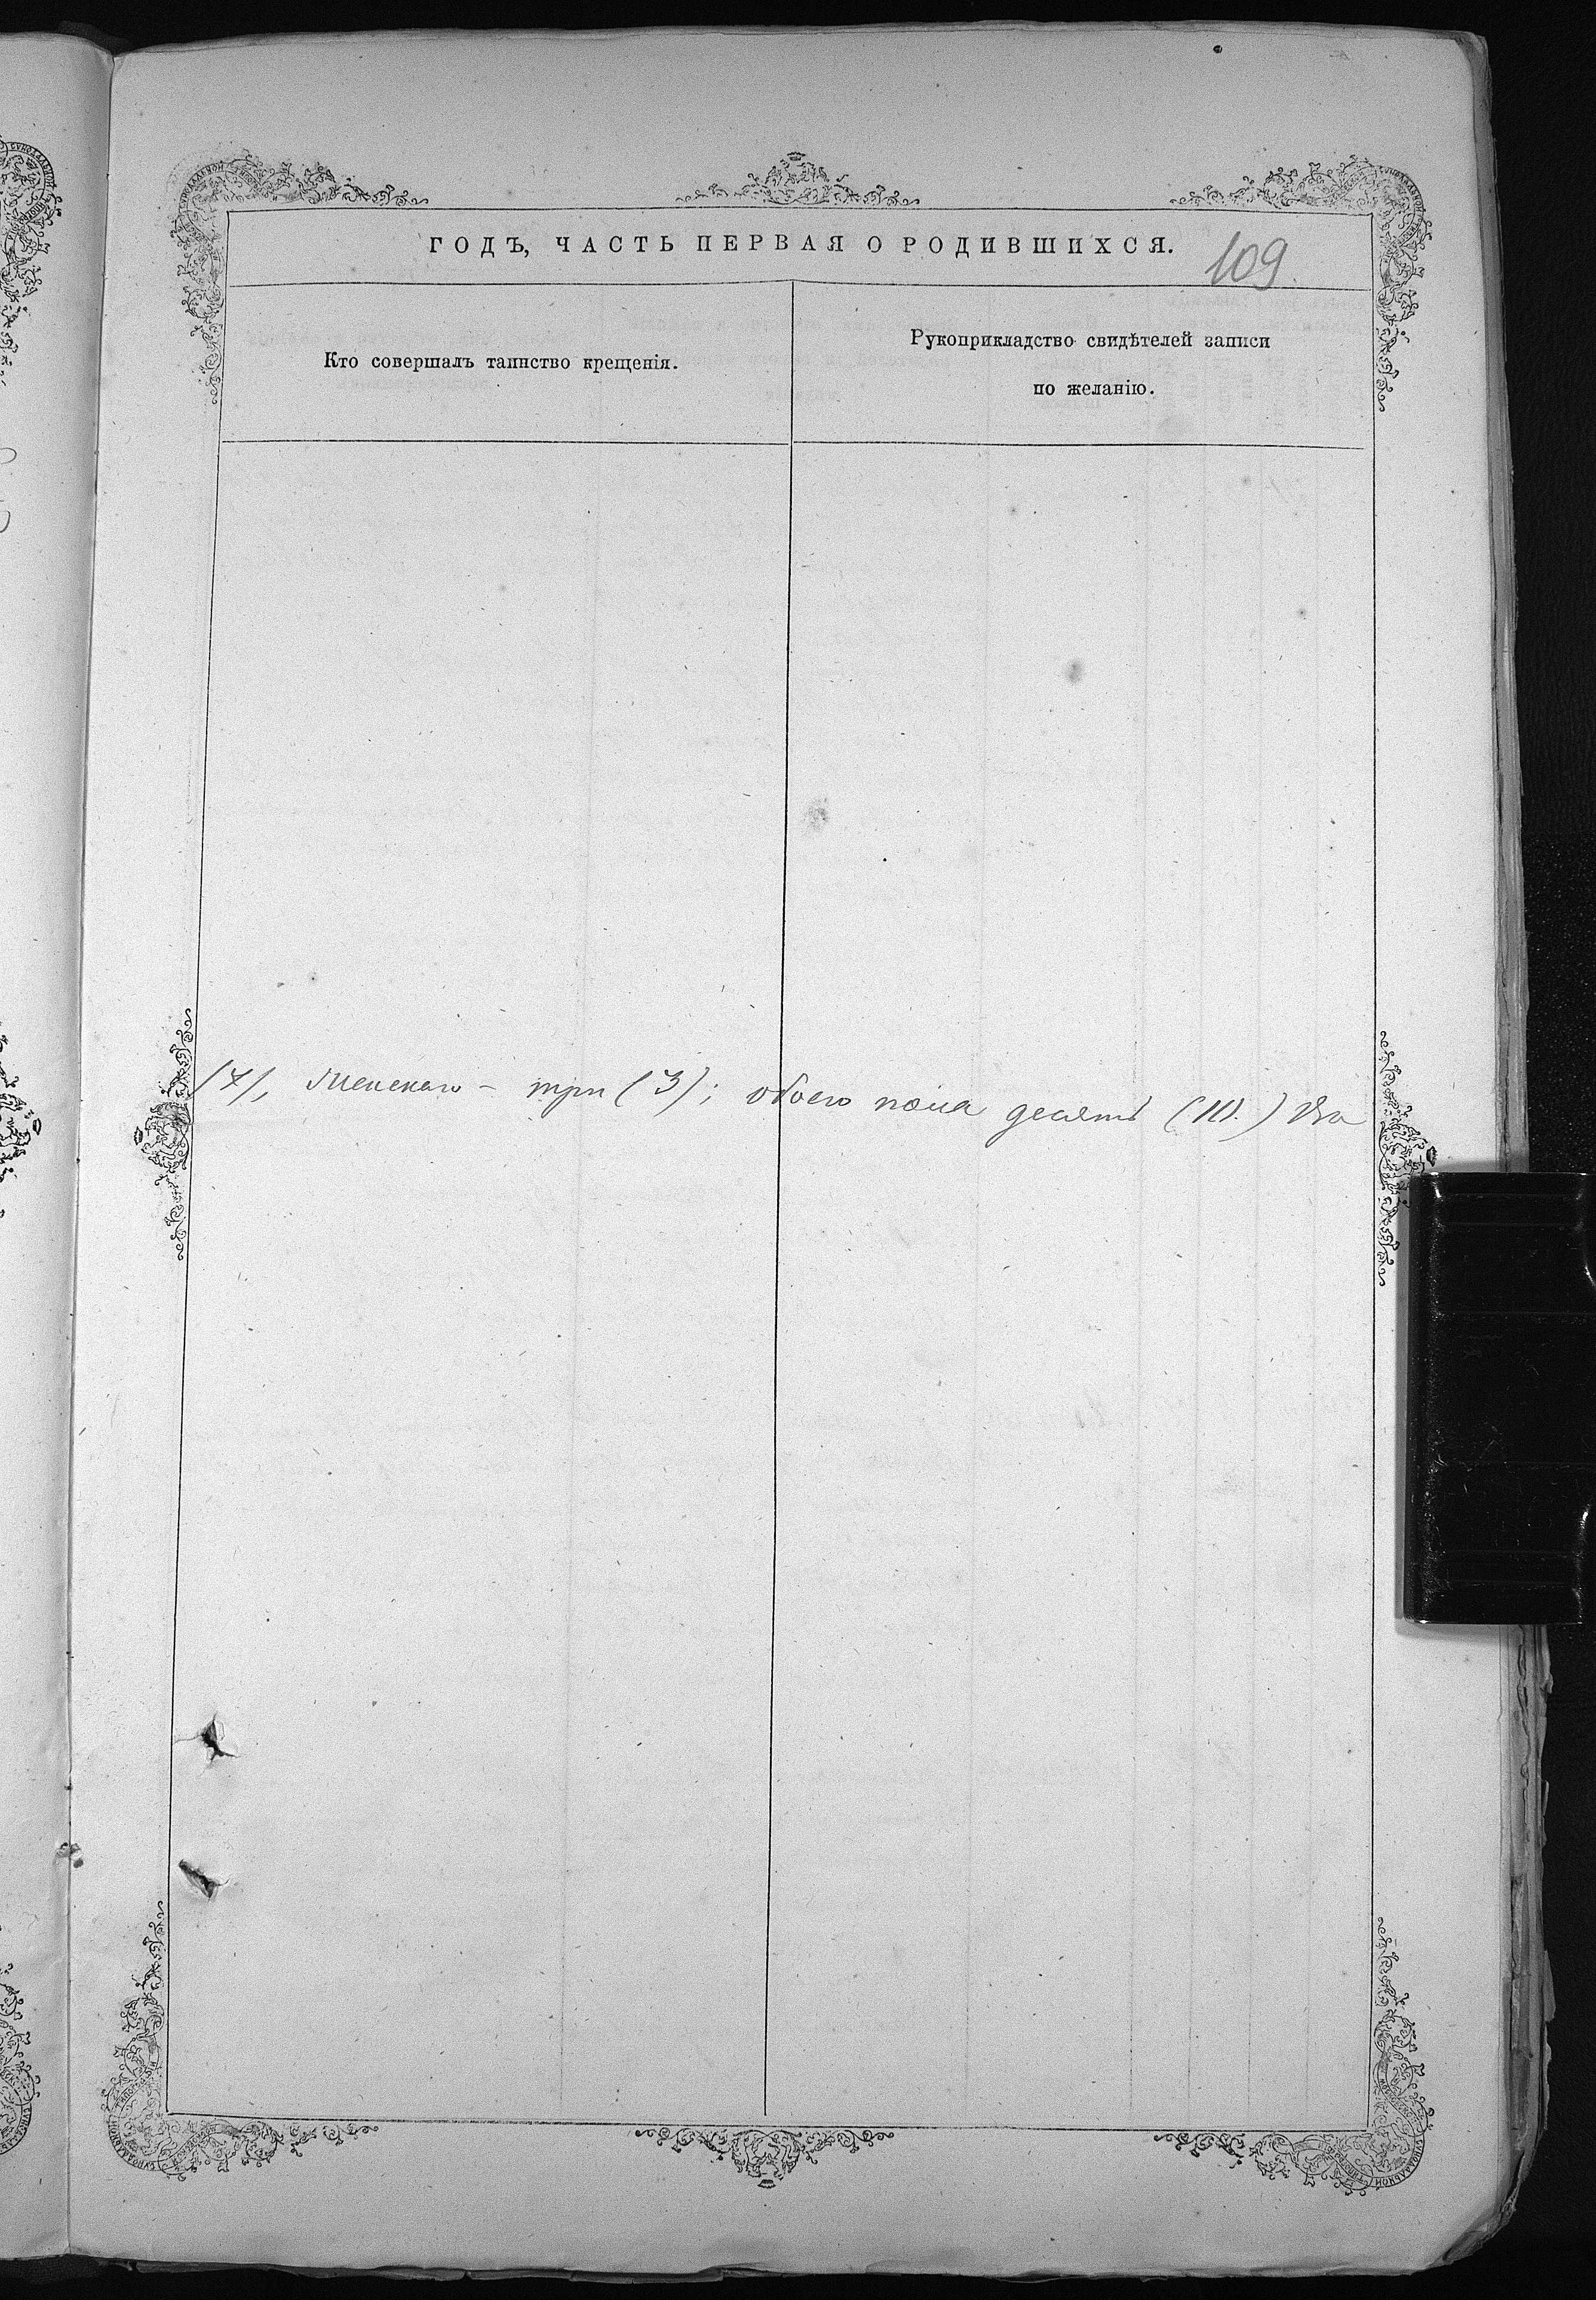 ГОДЪ, ЧАСТЬ ПЕРВАЯ О РОДИВШИХСЯ.
109
Кто совершалъ таинство крещенія.
Рукоприкладство свидѣтелей записи
по желанію.
(7), женскаго - три (3); обоего пола десять (10.)